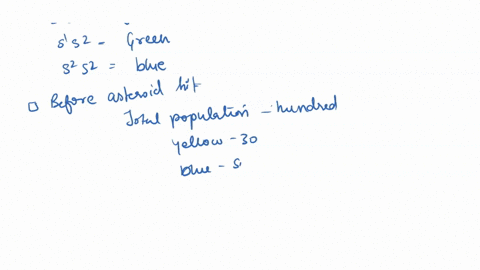 s¹s² - Green
s²s² = blue
□ Before asteroid hit
Total population - hundred
yellow - 30
blue -